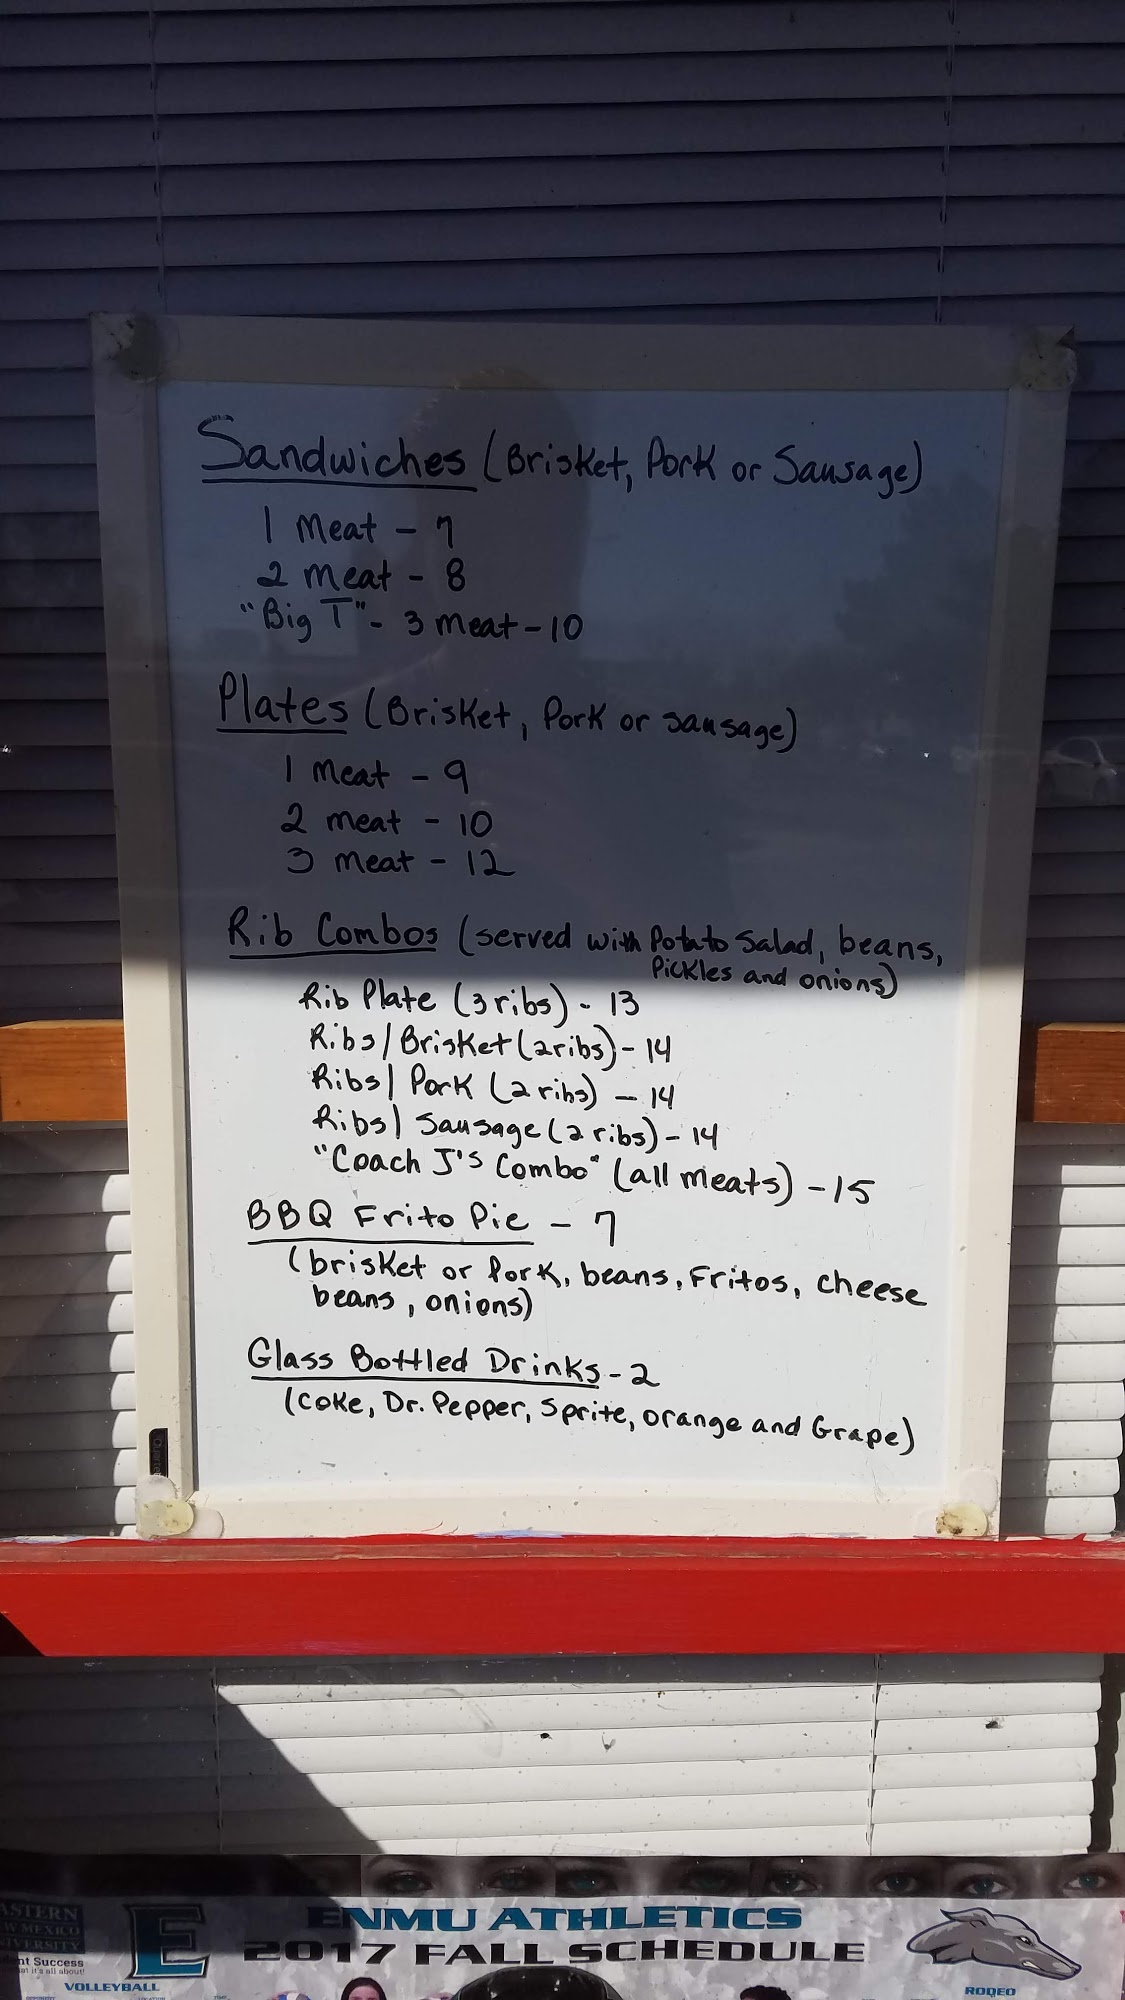 Sandwiches (Brisket, Pork or Sausage)
1 Meat - 7
2 meat - 8
"Big T" - 3 meat - 10
Plates (Brisket, Pork or sausage)
1 Meat - 9
2 meat - 10
3 meat - 12
Rib Combos (served with Potato Salad, beans,
Pickles and onions)
Rib Plate (3 ribs) - 13
Ribs/Brisket (2 ribs) - 14
Ribs/ Pork (2 ribs) - 14
Ribs/ Sausage (2 ribs) - 14
"Coach J's Combo" (all meats) - 15
BBQ Frito Pie - 7
(brisket or Pork, beans, Fritos, cheese
beans, onions)
Glass Bottled Drinks - 2
(Coke, Dr. Pepper, Sprite, orange and Grape)
Quartet
ASTERN
W MEXICO
IVERSITY
ent Success
at it's all about!
E
ENMU ATHLETICS
2017 FALL SCHEDULE
VOLLEYBALL
RODEO